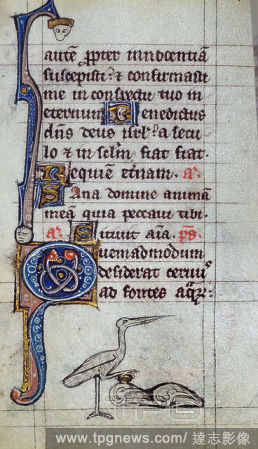 autē ꝓpter innocentiā
suscepisti: ⁊ confirmasti
me in conspectu tuo in
eternum Benedictus
dn̄s deus isrl̄ a secu
lo ⁊ in sclm̄ fiat fiat.
Requiē etnam. a.
Sana domine animam
meā quia peccavi tibi.
a. Sitivit aīa. ps.
Quemadmodum
desiderat cervꝰ
ad fontes aqꝝ:
TPG
www.tpgnews.com / 達志影像